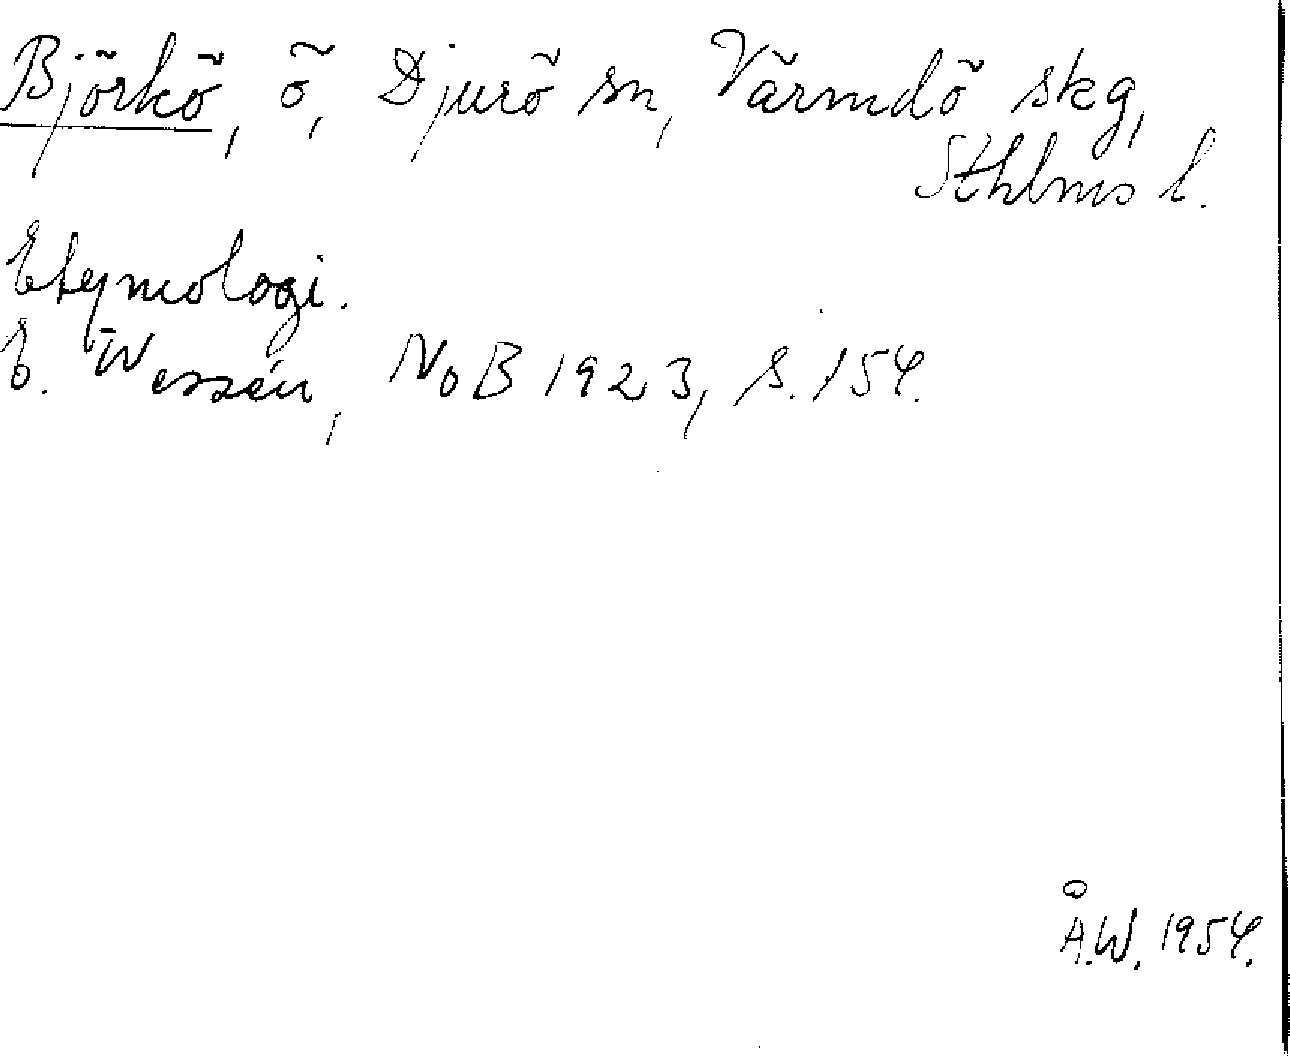 Björkö, ö, Djurö sn, Värmdö skg,
Sthlms l.
Etymologi.
E. Wessén, NoB 1923, s. 154.
Å.W. 1954.